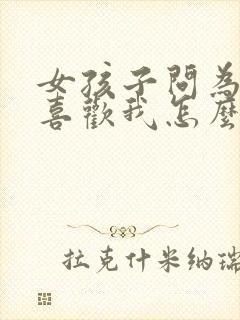 女孩子問為
喜歡我怎麼
拉克什米納瑞